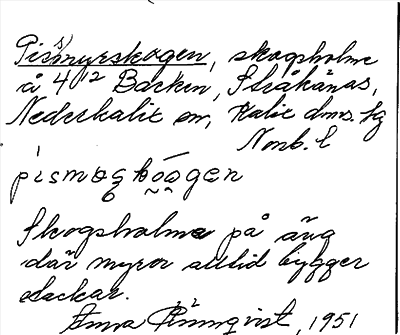 Pis(s)myrskogen, skogsholme
å 4 12 Backen, Stråkånäs,
Nederkalix sn, Kalix dms. tg
Norrb. l
pismøʂkóogen
Skogsholme på äng
där myror alltid bygger
stackar.
Anna Rönnqvist, 1951